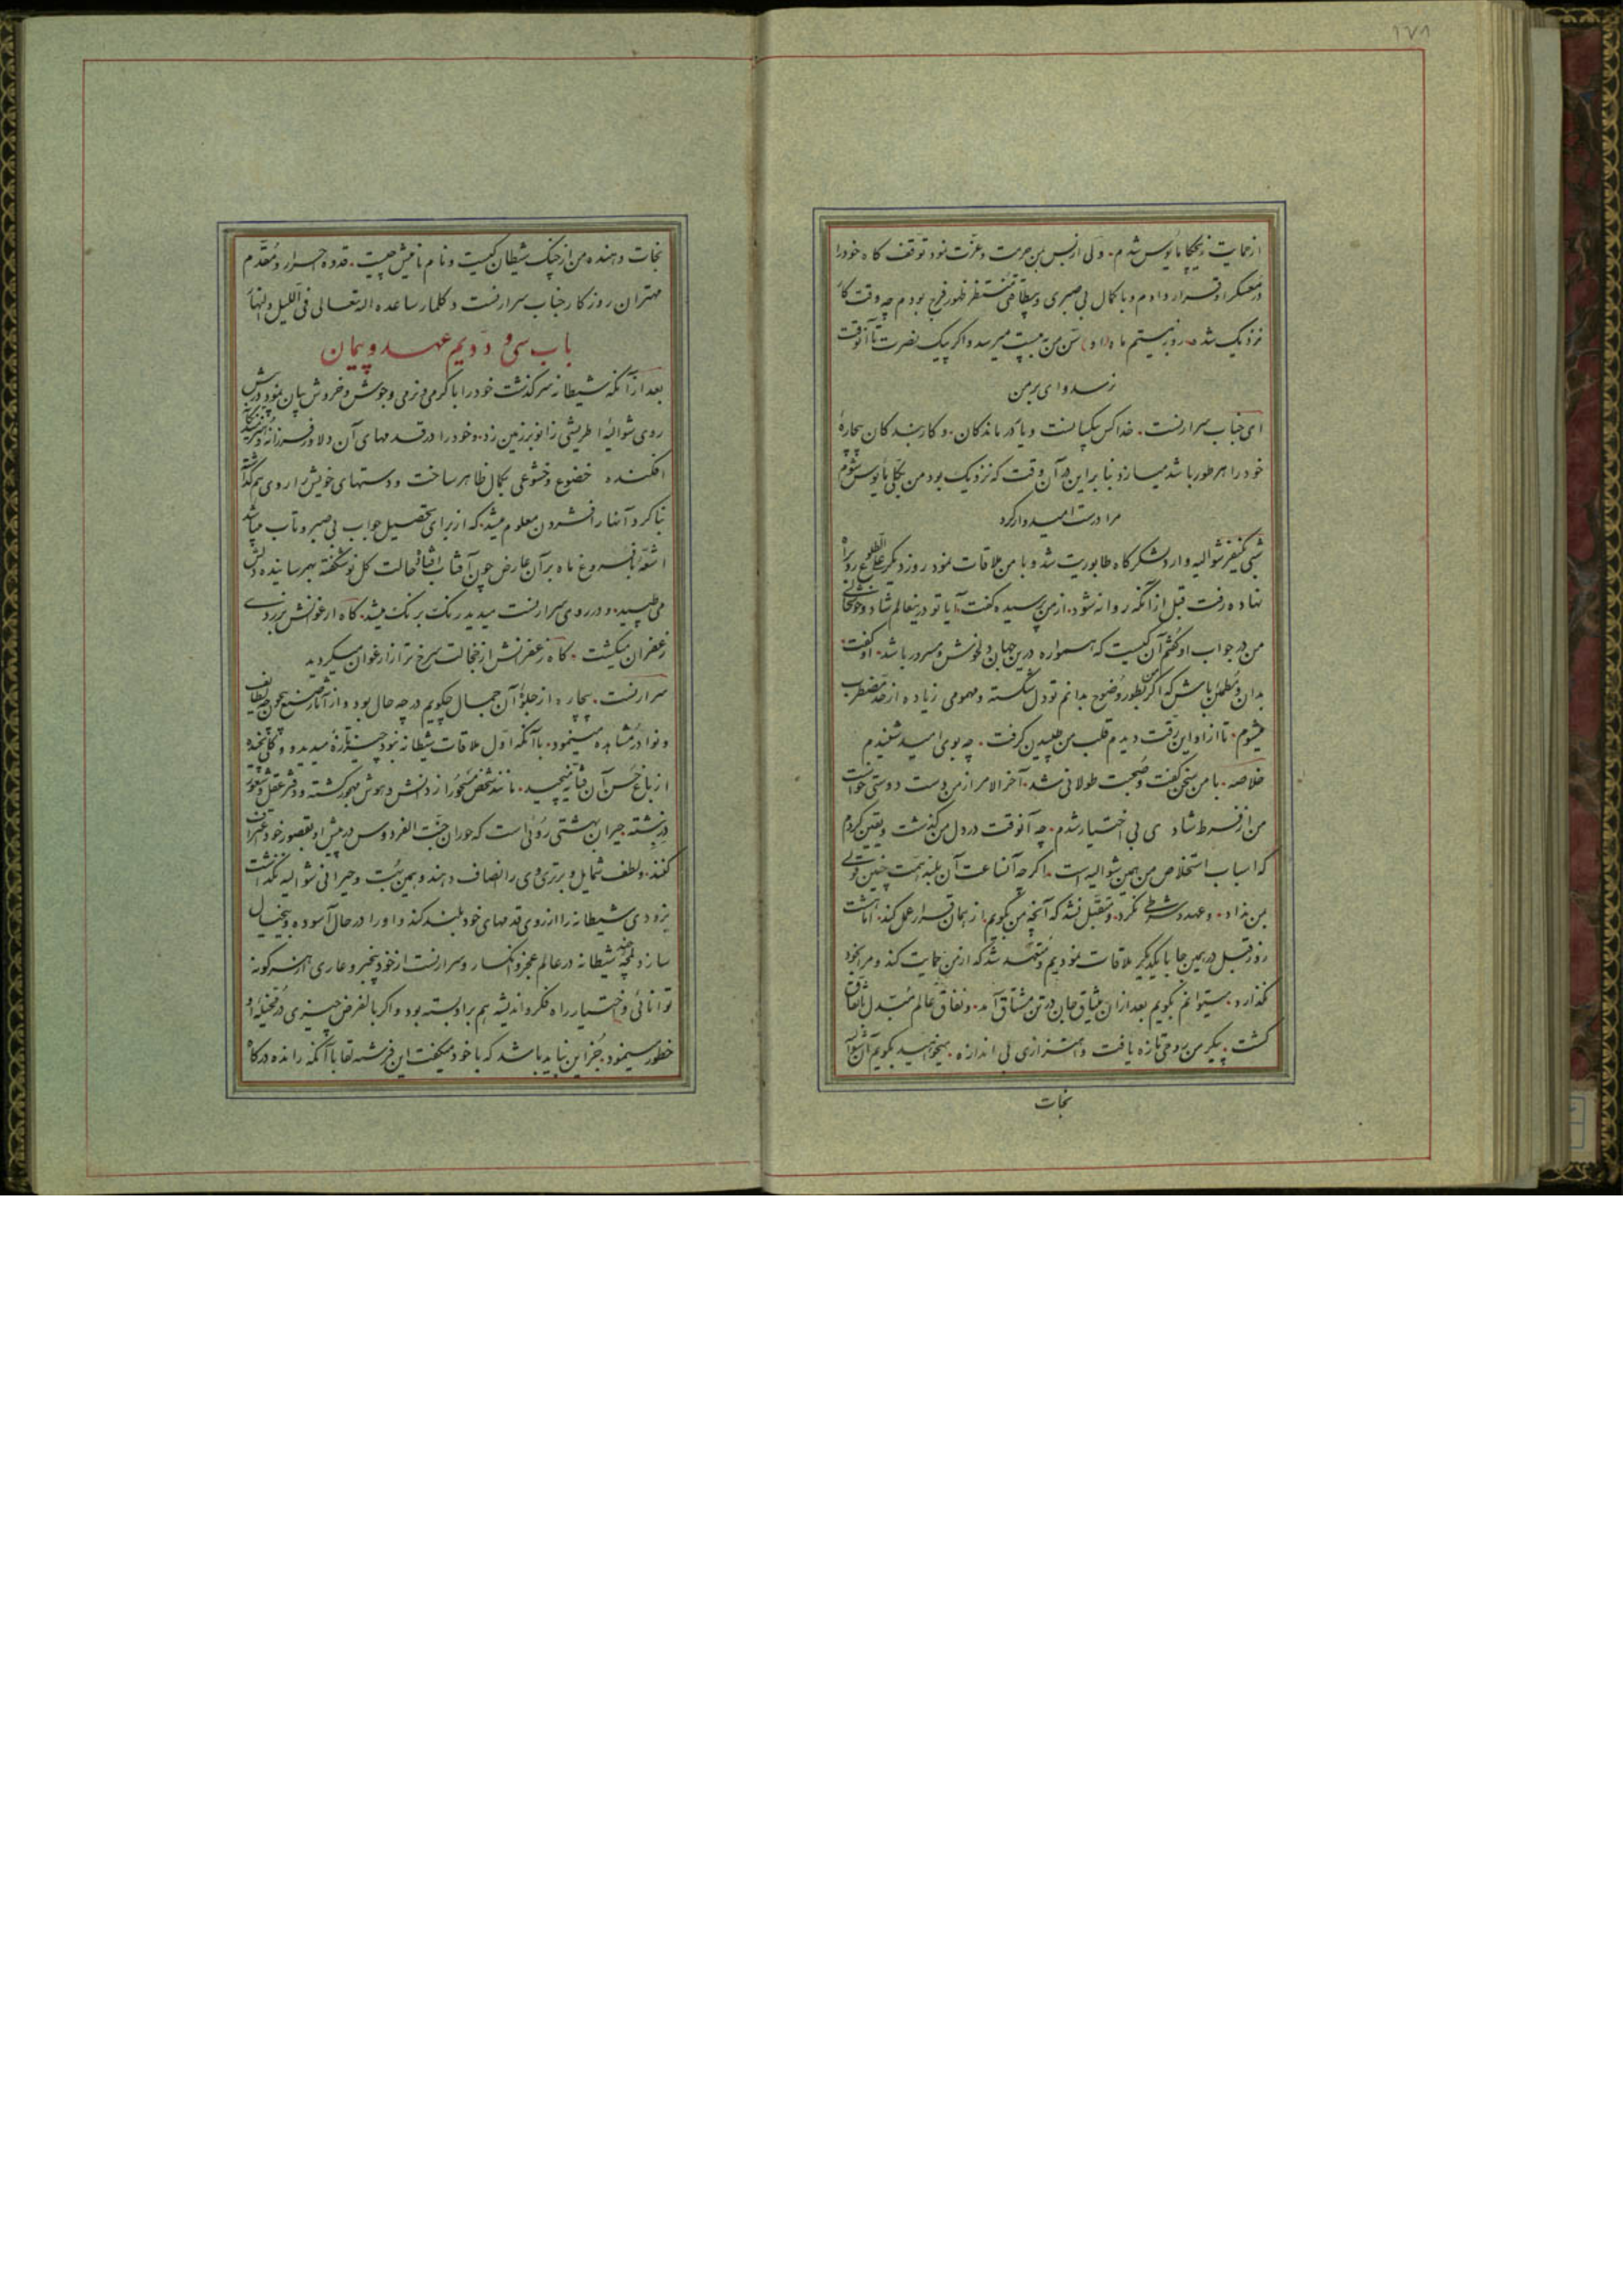 ۱۷۸
از حمایت زنجیکا مأیوس شدم. ولی از بس بمن حرمت و عزت نمود توقف گاه خود را
در معسکر او قرار دادم و با کمال بی صبری و بیطاقتی منتظر ظهور فرج بودم چه وقت کار
نزدیک شده روز بیستم ماه (او) سن من به بیست میرسد و اگر پیک نصرت تا آنوقت
نرسد وای بر من
ای جناب سرارنست. خدا کس بیکسانست و یاور درماندگان. و کار بندگان بیچارهٔ
خود را هر طور باشد میسازد بنا بر این در آن وقت که نزدیک بود من بکلی مأیوس شوم
مرا درست امیدوار کرد
شبی یکنفر شوالیه وارد لشکرگاه طابوریت شد و با من ملاقات نمود روز دیگر علی الطلوع رو براه
نهاده رفت قبل از آنکه روانه شود. از من پرسیده گفت آیا تو درینعالم شاد و خوشحالی
من در جواب او گفتم آن کیست که همواره درین جهان دلخوش و مسرور باشد. او گفت.
بدان و مطمئن باش که اگر من بطور وضوح بدانم تو دل شکسته و مهمومی زیاده از حد مضطرب
میشوم. تا از او این رقت دیدم قلب من طپیدن گرفت. چه بوی امید شنیدم
خلاصه. با من سخن گفت و صحبت طولانی شد. آخر الامر از من دست دوستی خواست
من از فرط شادی بی اختیار شدم. چه آنوقت در دل من گذشت و یقین کردم
که اسباب استخلاص من همین شوالیه است. اگرچه آنساعت آن بلند همت چنین قولی
بمن نداد. و عهد و شرطی نکرد. و متقبل نشد که آنچه من بگویم از همان قرار عمل کند. اما هشت
روز قبل در همین جا با یکدیگر ملاقات نمودیم و متعهد شد که از من حمایت کند و مرا بخود
نگذارد. میتوانم بگویم بعد از آن میثاق جان در تن مشتاق آمد. و نفاق عالم مبدل باتفاق
گشت. پیکر من روحی تازه یافت و اهتزازی بی اندازه. میخواهید بگویم آن شوالیه
نجات
نجات دهنده من از چنگ شیطان کیست و نام نامیش چیست. قدوه احرار و مقدم
مهتران روزگار جناب سرارنست دکلمار ساعده الله تعالی فی اللیل و النهار
باب سی و دویم عهد و پیمان
بعد از آنکه شیطانه سرگذشت خود را با گرمی و نرمی و جوش و خروش بیان نمود در پیش
روی شوالیهٔ اطریشی زانو بر زمین زد. و خود را در قدمهای آن دلاور فرزانه
افکنده خضوع و خشوعی بکمال ظاهر ساخت و دستهای خویش را روی هم گذاشته
بنا کرد آنها را فشردن معلوم میشد که از برای تحصیل جواب بی صبر و تاب میباشد
اشعهٔ با فروغ ماه بر آن عارض چون آفتاب افتاده حالت گل نو شگفته بهم رسانیده دلش
می طپید. و در روی سرارنست میدید رنگ برنگ میشد. گاه ارغوانش بزردی
زعفران میگشت. گاه زعفرانش از خجالت سرخ تر از ارغوان میگردید
سرارنست. بیچاره از جلوهٔ آن جمال چگویم در چه حال بود و از آثار صنع بیچون چه لطایف
و نوادر مشاهده مینمود. با آنکه اول ملاقات شیطانه نبود چیز تازهٔ میدید و گلی نچیده
از باغ حسن آن فتانه میچید. مانند شخص مسحور از دانش و هوش مهجور گشته و دفتر عقل و شعور
در نبشته. حیران بهشتی روئی است که حوران جنت الفردوس در پیش او بقصور خود اعتراف
کنند. و لطف شمایل و برتری وی را انصاف دهند و همین بهت و حیرانی شوالیه نگذاشت
بزودی شیطانه را از روی قدمهای خود بلند کند و او را در حال آسوده و بیخیال
سازد لمحهٔ چند شیطانه در عالم عجز و انکسار و سرارنست از خود بیخبر و عاری از هر گونه
توانائی و اختیار راه فکر و اندیشه هم بر او بسته بود و اگر بالفرض چیزی در مخیلهٔ او
خطور مینمود. جز این نباید باشد که با خود میگفت این فرشته لقا با آنکه رانده درگاه